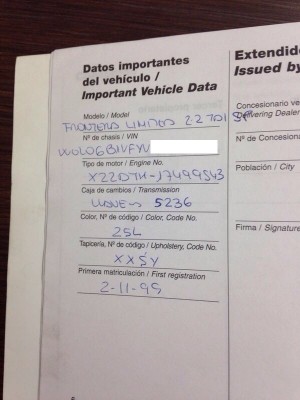 Datos importantes
del vehículo /
Important Vehicle Data
Modelo / Model
FRONTERA LIMITED 2.2 TDI 5P
Nº de chasis / VIN
W0L06B1VFXV
Tipo de motor / Engine No.
X22DTH-J7499543
Caja de cambios / Transmission
LLAVES 5236
Color, Nº de código / Color, Code No.
25L
Tapicería, Nº de código / Upholstery, Code No.
XXSY
Primera matriculación / First registration
2-11-99
6
Extendido
Issued by
Concesionario
Delivering Dealer
Nº de Concesiona
Población / City
Firma / Signature